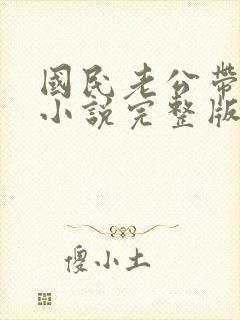 國民老公帶
小說完整版
傻小土